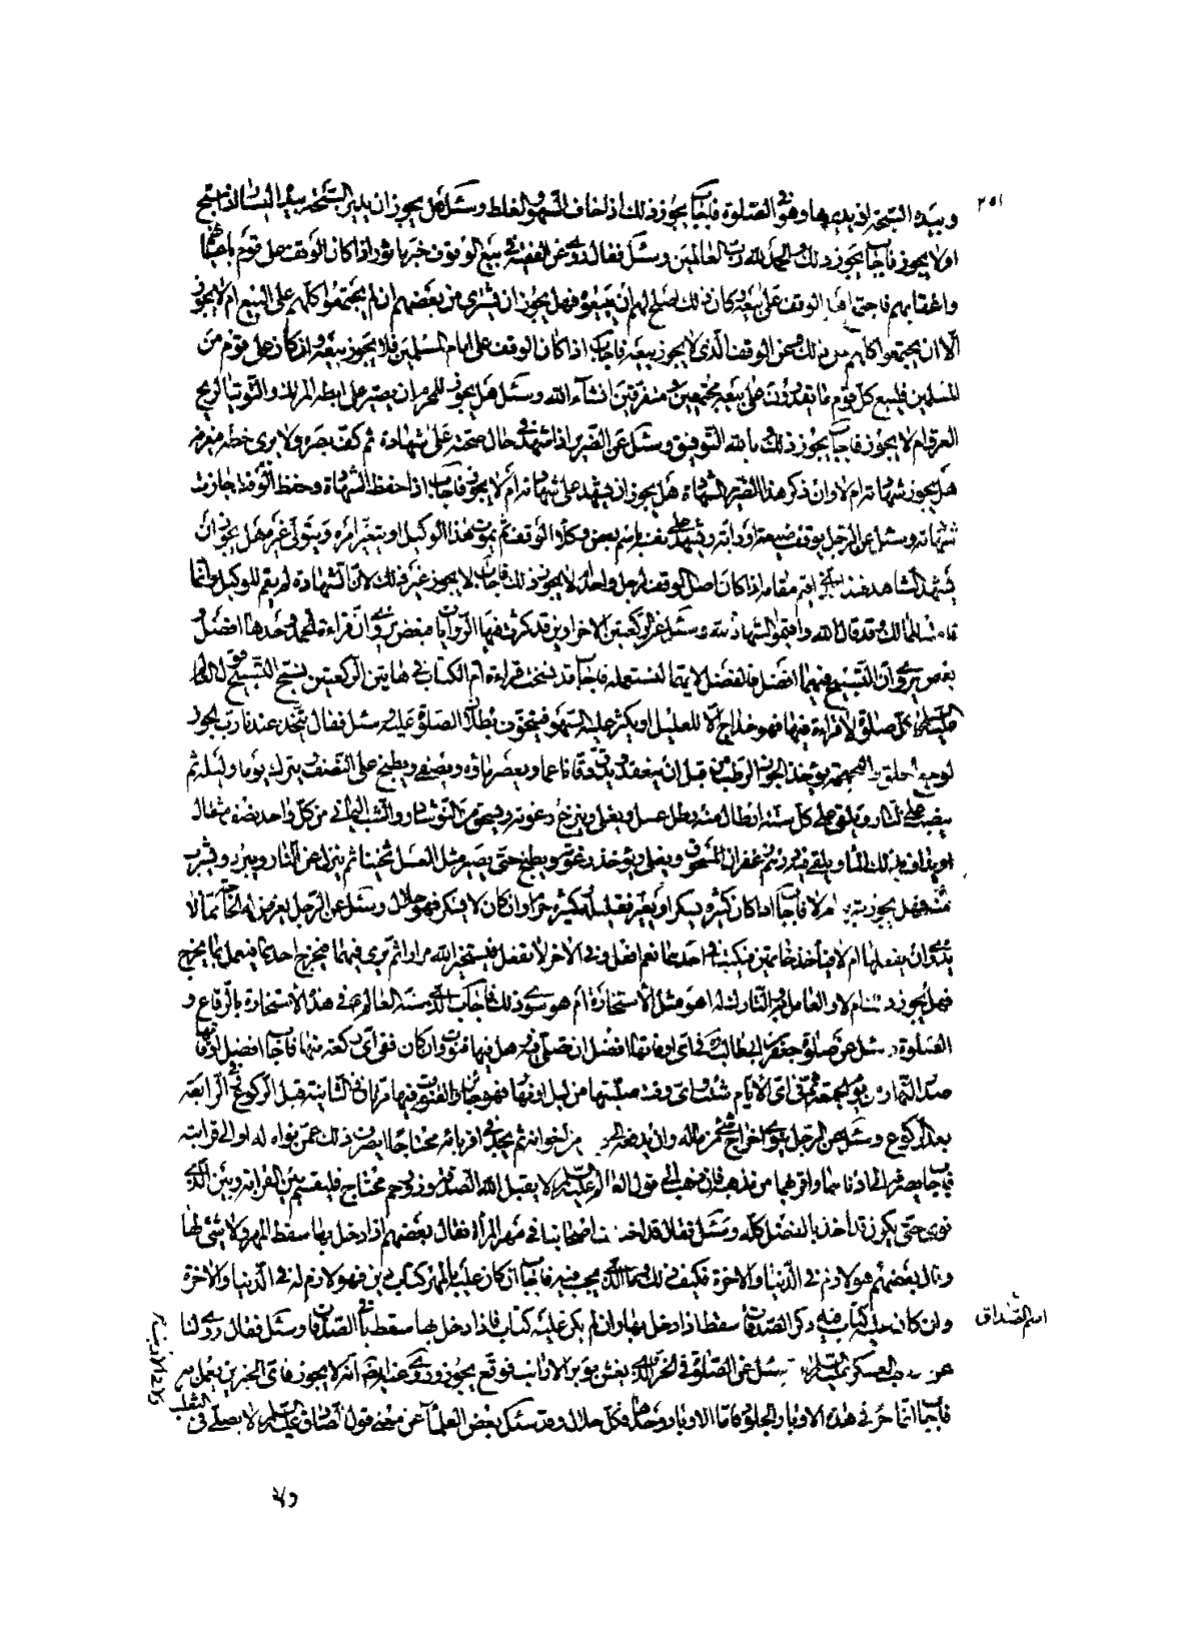 ٢٥١
وبيده السبحة ان يديرها وهو في الصلوة فاجاب يجوز ذلك اذا خاف السهو والغلط وسئل هل يجوز ان يدير السبحة بيد اليسار اذا سبح
او لا يجوز فاجاب يجوز ذلك والحمد لله رب العالمين وسئل فقال روي عن الفقيه في بيع الوقوف خبر مأثور اذا كان الوقف على قوم باعيانهم
واعقابهم فاجتمع اهل الوقف على بيعه وكان ذلك اصلح لهم ان يبيعوه فهل يجوز ان يشترى من بعضهم ان لم يجتمعوا كلهم على البيع ام لا يجوز
الا ان يجتمعوا كلهم على ذلك وعن الوقف الذى لا يجوز بيعه فاجاب اذا كان الوقف على امام المسلمين فلا يجوز بيعه واذا كان على قوم من
المسلمين فليبع كل قوم ما يقدرون على بيعه مجتمعين ومتفرقين انشاء الله وسئل هل يجوز للمحرم ان يصير على ابطه المرتك والتوتيا لريح
العرق ام لا يجوز فاجاب يجوز ذلك وبالله التوفيق وسئل عن الضرير اذا شهد في حال صحته على شهادة ثم كف بصره ولا يرى خطه فيعرفه
هل يجوز شهادته ام لا وان ذكر هذا الضرير الشهادة هل يجوز ان يشهد على شهادته ام لا يجوز فاجاب اذا حفظ الشهادة وحفظ الوقت جازت
شهادته وسئل عن الرجل يوقف ضيعة او دابة ويشهد على نفسه باسم بعض وكلاء الوقف ثم يموت هذا الوكيل او يتغير امره ويتولى غيره هل يجوز ان
يشهد الشاهد لهذا الذي اقيم مقامه اذا كان اصل الوقف لرجل واحد ام لا يجوز ذلك فاجاب لا يجوز غير ذلك لان الشهادة لم يقم للوكيل وانما
قامت للمالك وقد قال الله واقيموا الشهادة لله وسئل عن الركعتين الاخراوين قد كثرت فيها الروايات فبعض يروي ان قراءة الحمد وحدها افضل
وبعض يروي ان التسبيح فيهما افضل فالفضل لايهما لنستعمله فاجاب قد نسخت قراءة ام الكتاب في هاتين الركعتين التسبيح والذي نسخ التسبيح قول العالم
عليه السلم كل صلوة لا قراءة فيها فهو خداج الا للعليل او يكثر عليه السهو فيتخوف بطلان الصلوة عليه وسئل فقال يتخذ عندنا رب الجوز
لوجع الحلق والبحبحة يؤخذ الجوز الرطب من قبل ان ينعقد ويدق دقا ناعما ويعصر ماؤه ويصفى ويطبخ على النصف ويترك يوما وليلة ثم
ينصب على النار ويلقى على كل ستة ارطال منه رطل عسل ويغلى وينزع رغوته ويسحق من النوشادر والشب اليماني من كل واحد نصف مثقال
ويداف بذلك الماء ويلقى فيه درهم زعفران المسحوق ويغلى ويؤخذ رغوته ويطبخ حتى يصير مثل العسل ثخينا ثم ينزل عن النار ويبرد ويشرب
منه فهل يجوز شربه ام لا فاجاب اذا كان كثيره يسكر او يغير فقليله وكثيره حرام وان كان لا يسكر فهو حلال وسئل عن الرجل يعرض له الحاجة مما لا
يدري ان يفعلها ام لا فيأخذ خاتمين فيكتب في احدهما نعم افعل وفي الاخر لا تفعل فيستخير الله مرارا ثم يرى فيهما فيخرج احدهما فيعمل بما يخرج
فهل يجوز ذلك ام لا والعامل به والتارك له اهو مثل الاستخارة ام هو سوى ذلك فاجاب الذي سنه العالم في هذا الاستخارة بالرقاع و
الصلوة وسئل عن صلوة جعفر بن ابي طالب في اي اوقاتها افضل ان تصلى فيه وهل فيها قنوت وان كان ففي اي ركعة منها فاجاب افضل اوقاتها
صدر النهار من يوم الجمعة ثم في اي الايام شئت واي وقت صليتها من ليل او نهار فهو جائز والقنوت فيها مرتان في الثانية قبل الركوع وفي الرابعة
بعد الركوع وسئل عن الرجل ينوي اخراج شئ من ماله وان يدفعه الى رجل من اخوانه ثم يجد في اقربائه محتاجا ايصرف ذلك عمن نواه له او الى قرابته
فاجاب يصرفه الى ادناهما واقربهما من مذهبه فان ذهب الى قول العالم عليه السلم لا يقبل الله الصدقة وذو رحم محتاج فليقسم بين القرابة وبين الذي
نوى حتى يكون قد اخذ بالفضل كله وسئل فقال قد اختلف اصحابنا في مهر المرأة فقال بعضهم اذا دخل بها سقط المهر ولا شئ لها
وقال بعضهم هو لازم في الدنيا والاخرة فكيف ذلك وما الذي يجب فيه فاجاب ان كان عليه بالمهر كتاب دين فهو لازم له في الدنيا والاخرة
وان كان عليه كتاب فيه ذكر الصدقات سقط اذا دخل بها وان لم يكن عليه كتاب فاذا دخل بها سقط باقي الصداق وسئل فقال روي لنا
اسم الصداق
عن صاحب العسكر عليه السلم انه سئل عن الصلوة في الخز الذي يغش بوبر الارانب فوقع يجوز وروي عنه ايضا انه لا يجوز فاي الخبرين يعمل به
فاجاب انما حرم في هذه الاوبار والجلود فاما الاوبار وحدها فكل حلال وقد سئل بعض العلماء عن معنى قول الصادق عليه السلم لا يصلى في
الثعلب